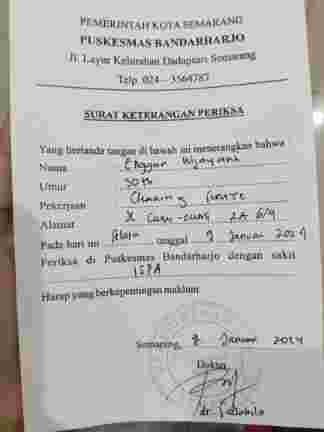 PEMERINTAH KOTA SEMARANG
PUSKESMAS BANDARHARJO
Jl. Layur Kelurahan Dadapsari Semarang
Telp. 024 - 3564787
SURAT KETERANGAN PERIKSA
Yang bertanda tangan di bawah ini menerangkan bahwa
Nama
Umur 30 th
Pekerjaan
Alamat
Pada hari ini tanggal 9 Januari 2024
Periksa di Puskesmas Bandarharjo dengan sakit
ISPA
Harap yang berkepentingan maklum
Semarang, Januari 2024
Dokter